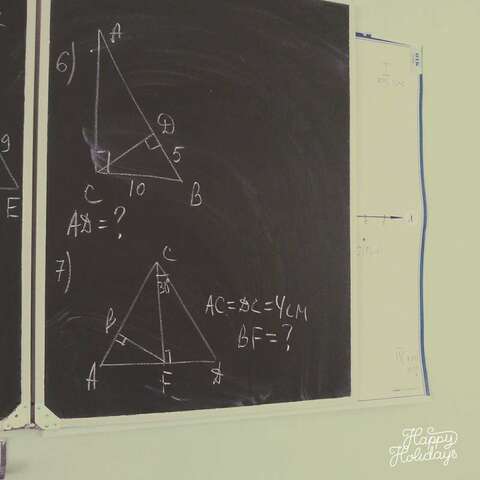 6)
A
D
5
C
10
B
AD = ?
9
E
7)
C
30°
B
A
F
D
AC = DC = 4 см
BF = ?
Happy
Holidays